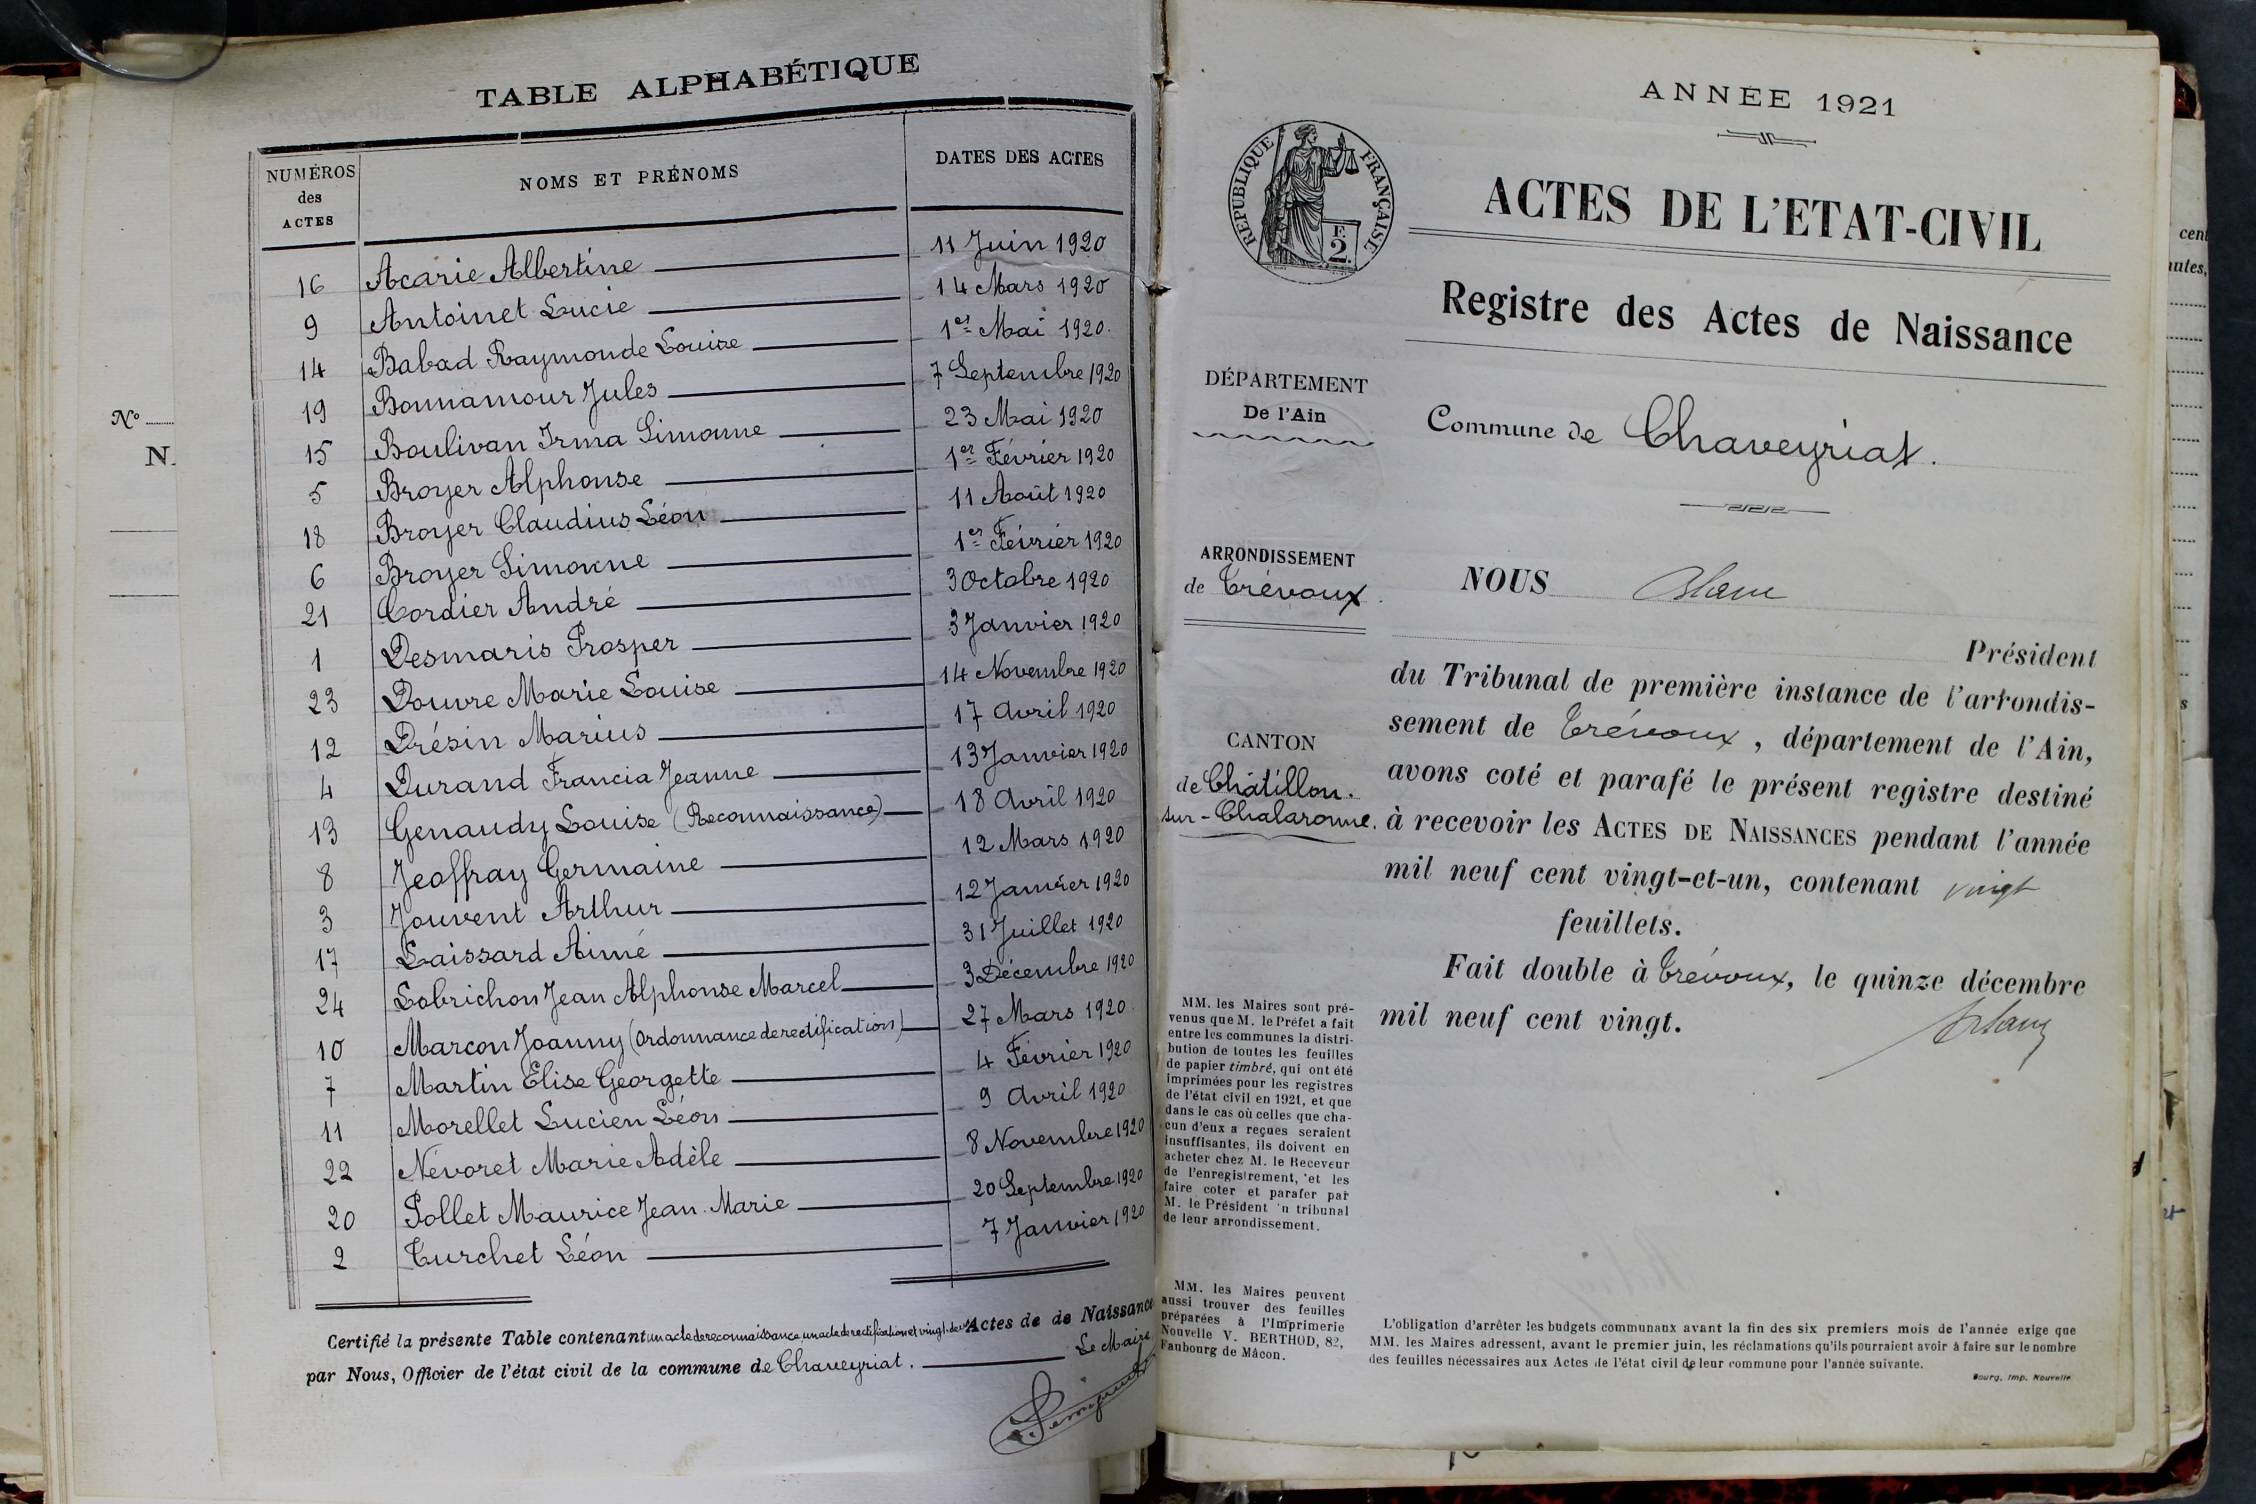 N°
N.
TABLE ALPHABÉTIQUE
NUMÉROS
des
ACTES
NOMS ET PRÉNOMS
DATES DES ACTES
16 Acarie Albertine 11 Juin 1920
9 Antoinet Lucie 14 Mars 1920
14 Babad Raymonde Louise 1er Mai 1920.
19 Bonnamour Jules 7 Septembre 1920
15 Boulivan Irma Simonne 23 Mai 1920
5 Broyer Alphonse 1er Février 1920
18 Broyer Claudius Léon 11 Août 1920
6 Broyer Simonne 1er Février 1920
21 Cordier André 3 Octobre 1920
1 Desmaris Prosper 3 Janvier 1920
23 Douvre Marie Louise 14 Novembre 1920
12 Drésin Marius 17 Avril 1920
4 Durand Francia Jeanne 13 Janvier 1920
13 Genaudy Louise (Reconnaissance) 18 Avril 1920
8 Jeoffray Germaine 12 Mars 1920
3 Jouvent Arthur 12 Janvier 1920
17 Laissard Aimé 31 Juillet 1920
24 Lobrichon Jean Alphonse Marcel 3 Décembre 1920
10 Marcon Joanny (Ordonnance de rectification) 27 Mars 1920
7 Martin Elise Georgette 4 Février 1920
11 Morellet Lucien Léon 9 Avril 1920
22 Névoret Marie Adèle 8 Novembre 1920
20 Pollet Maurice Jean-Marie 20 Septembre 1920
2 Turchet Léon 7 Janvier 1920
Certifié la présente Table contenant un acte de reconnaissance, un acte de rectification et vingt-deux Actes de de Naissance
par Nous, Officier de l'état civil de la commune de Chaveyriat.
Le Maire
ANNÉE 1921
RÉPUBLIQUE FRANÇAISE
F.
2.
ACTES DE L'ETAT-CIVIL
Registre des Actes de Naissance
DÉPARTEMENT
De l'Ain
Commune de Chaveyriat.
ARRONDISSEMENT
de Trévoux.
NOUS Blanc
Président
du Tribunal de première instance de l'arrondis-
sement de Trévoux, département de l'Ain,
avons coté et parafé le présent registre destiné
à recevoir les ACTES DE NAISSANCES pendant l'année
mil neuf cent vingt-et-un, contenant vingt
feuillets.
Fait double à Trévoux, le quinze décembre
mil neuf cent vingt.
Blanc
CANTON
de Châtillon-
sur-Chalaronne.
MM. les Maires sont pré-
venus que M. le Préfet a fait
entre les communes la distri-
bution de toutes les feuilles
de papier timbré, qui ont été
imprimées pour les registres
de l'état civil en 1921, et que
dans le cas où celles que cha-
cun d'eux a reçues seraient
insuffisantes, ils doivent en
acheter chez M. le Receveur
de l'enregistrement, et les
faire coter et parafer par
M. le Président 'n tribunal
de leur arrondissement.
MM. les Maires peuvent
aussi trouver des feuilles
préparées à l'Imprimerie
Nouvelle V. BERTHOD, 82,
Faubourg de Mâcon.
L'obligation d'arrêter les budgets communaux avant la fin des six premiers mois de l'année exige que
MM. les Maires adressent, avant le premier juin, les réclamations qu'ils pourraient avoir à faire sur le nombre
des feuilles nécessaires aux Actes de l'état civil de leur commune pour l'année suivante.
Bourg, Imp. Nouvelle
cent
nutes,
s